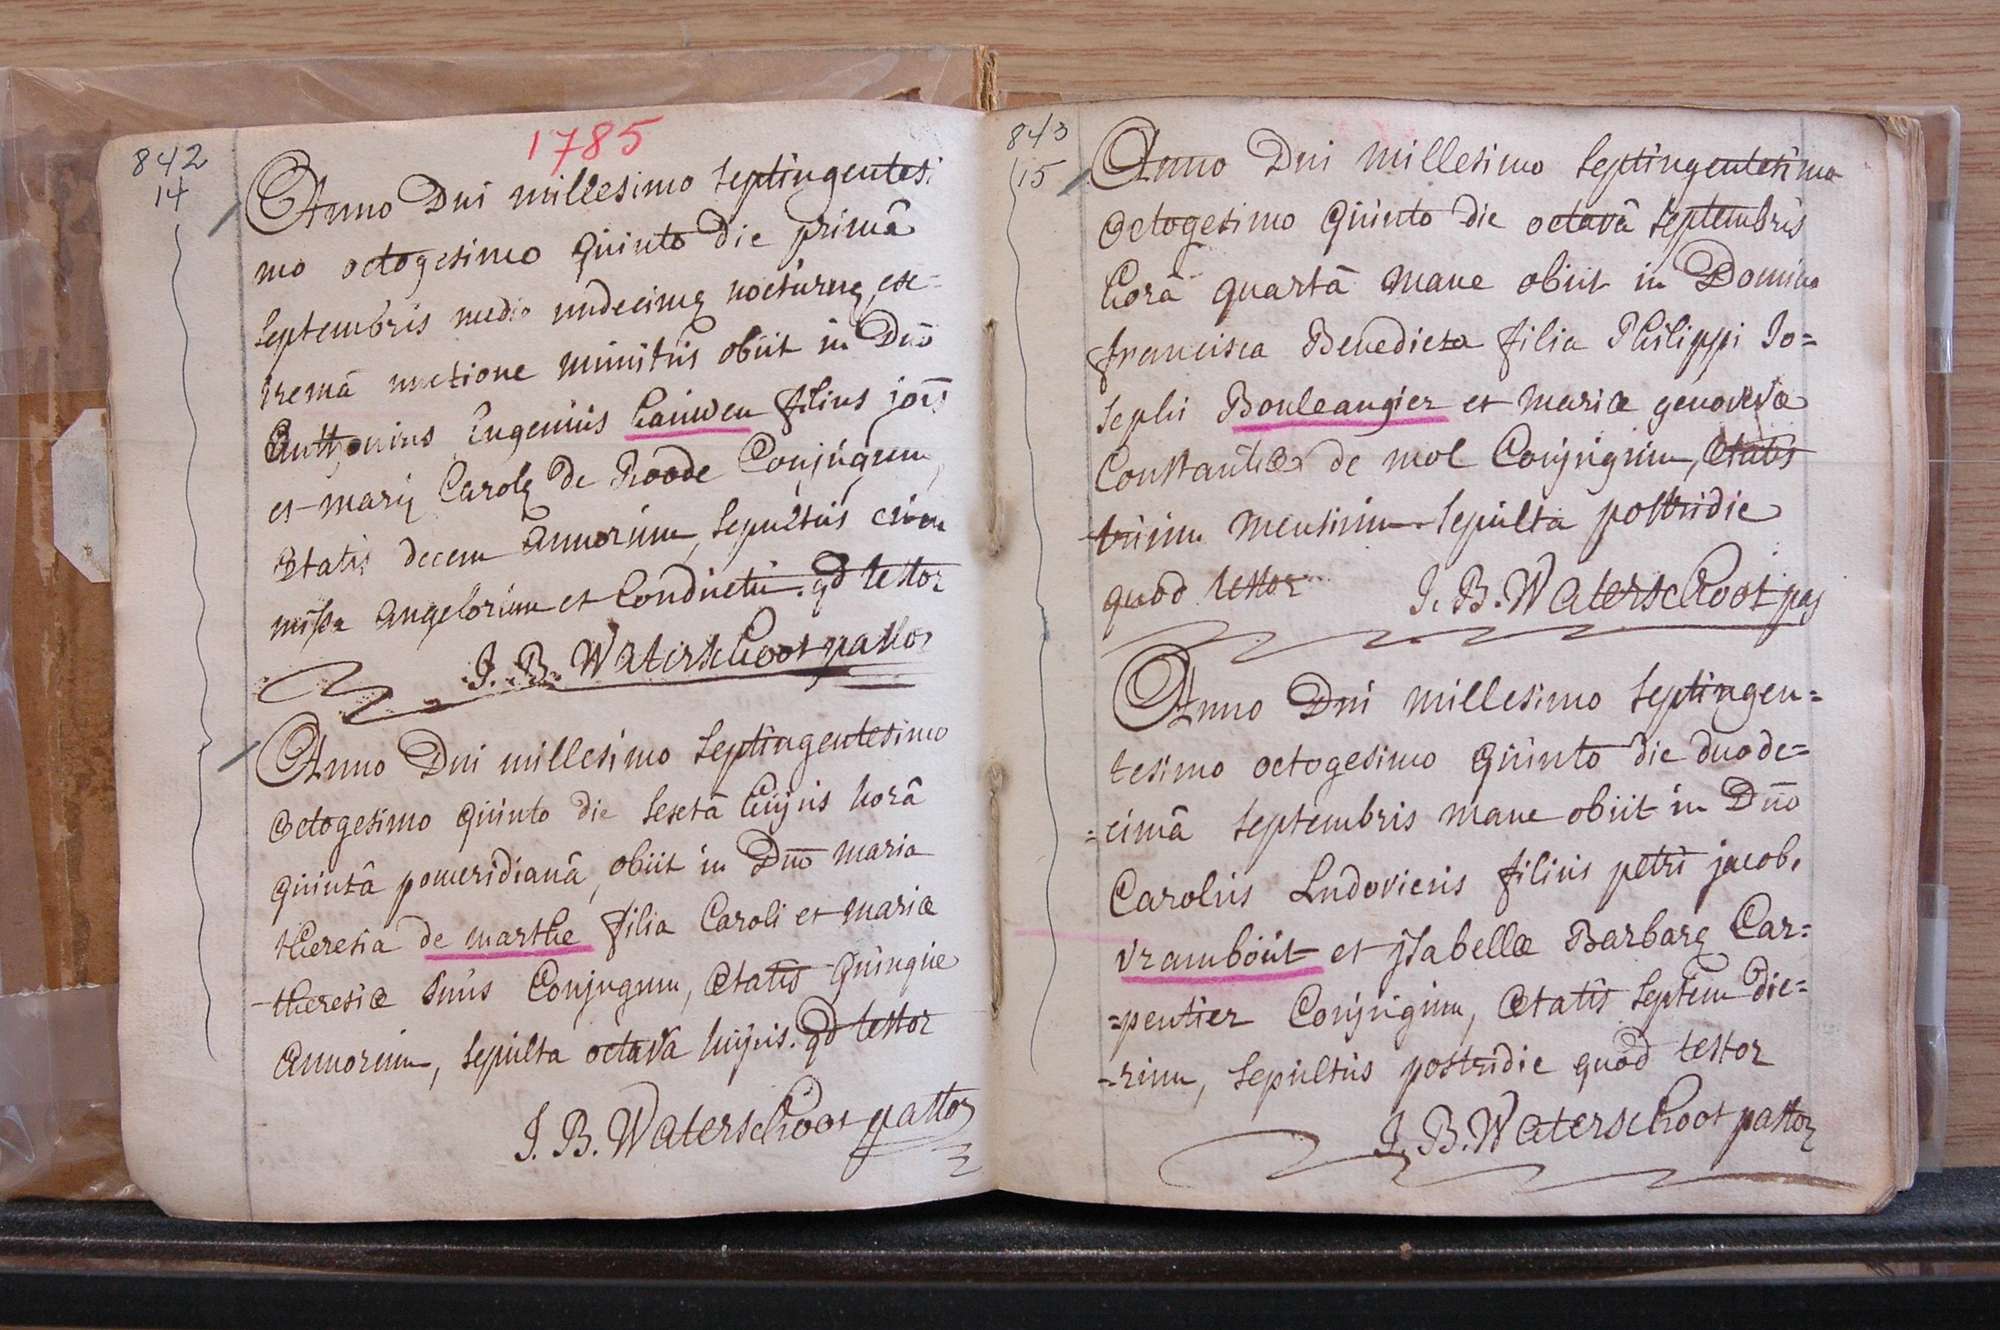 842
14
1785
Anno Dni millesimo septingentesi
mo octogesimo quinto die primâ
septembris media undecimę nocturnę, ex-
tremâ unctione munitus obiit in Dno
Anthonius Eugenius Cauwen filius jois
et marię Carolę de Roode Conjugum,
ętatis decem annorum, sepultus cum
missa angelorum et Conductu. qd testor
J. B. Waterschoot pastor
Anno Dni millesimo septingentesimo
octogesimo quinto die sextâ hujus horâ
quintâ pomeridianâ, obiit in Dno maria
theresia de marthe filia Caroli et mariæ
theresiæ Conjugum, ætatis quinque
annorum, sepulta octava hujus. qd testor
J. B. Waterschoot pastor
843
15
Anno Dni millesimo septingentesimo
octogesimo quinto die octavâ septembris
horâ quartâ mane obiit in Domino
francisca Benedicta filia Philippi Jo=
sephi Bouleangier et mariæ genovevæ
Constantiæ de mol Conjugum, ætatis
trium mensium sepulta postridie
quod testor J. B. Waterschoot pas
Anno Dni millesimo septingen=
tesimo octogesimo quinto die duode=
=cimâ septembris mane obiit in Dno
Carolus Ludovicus filius petri jacobi
vrambout et ysabellæ Barbarę Car=
=pentier Conjugum, ætatis septem die=
=rum, sepultus postridie quod testor
J. B. Waterschoot pastor